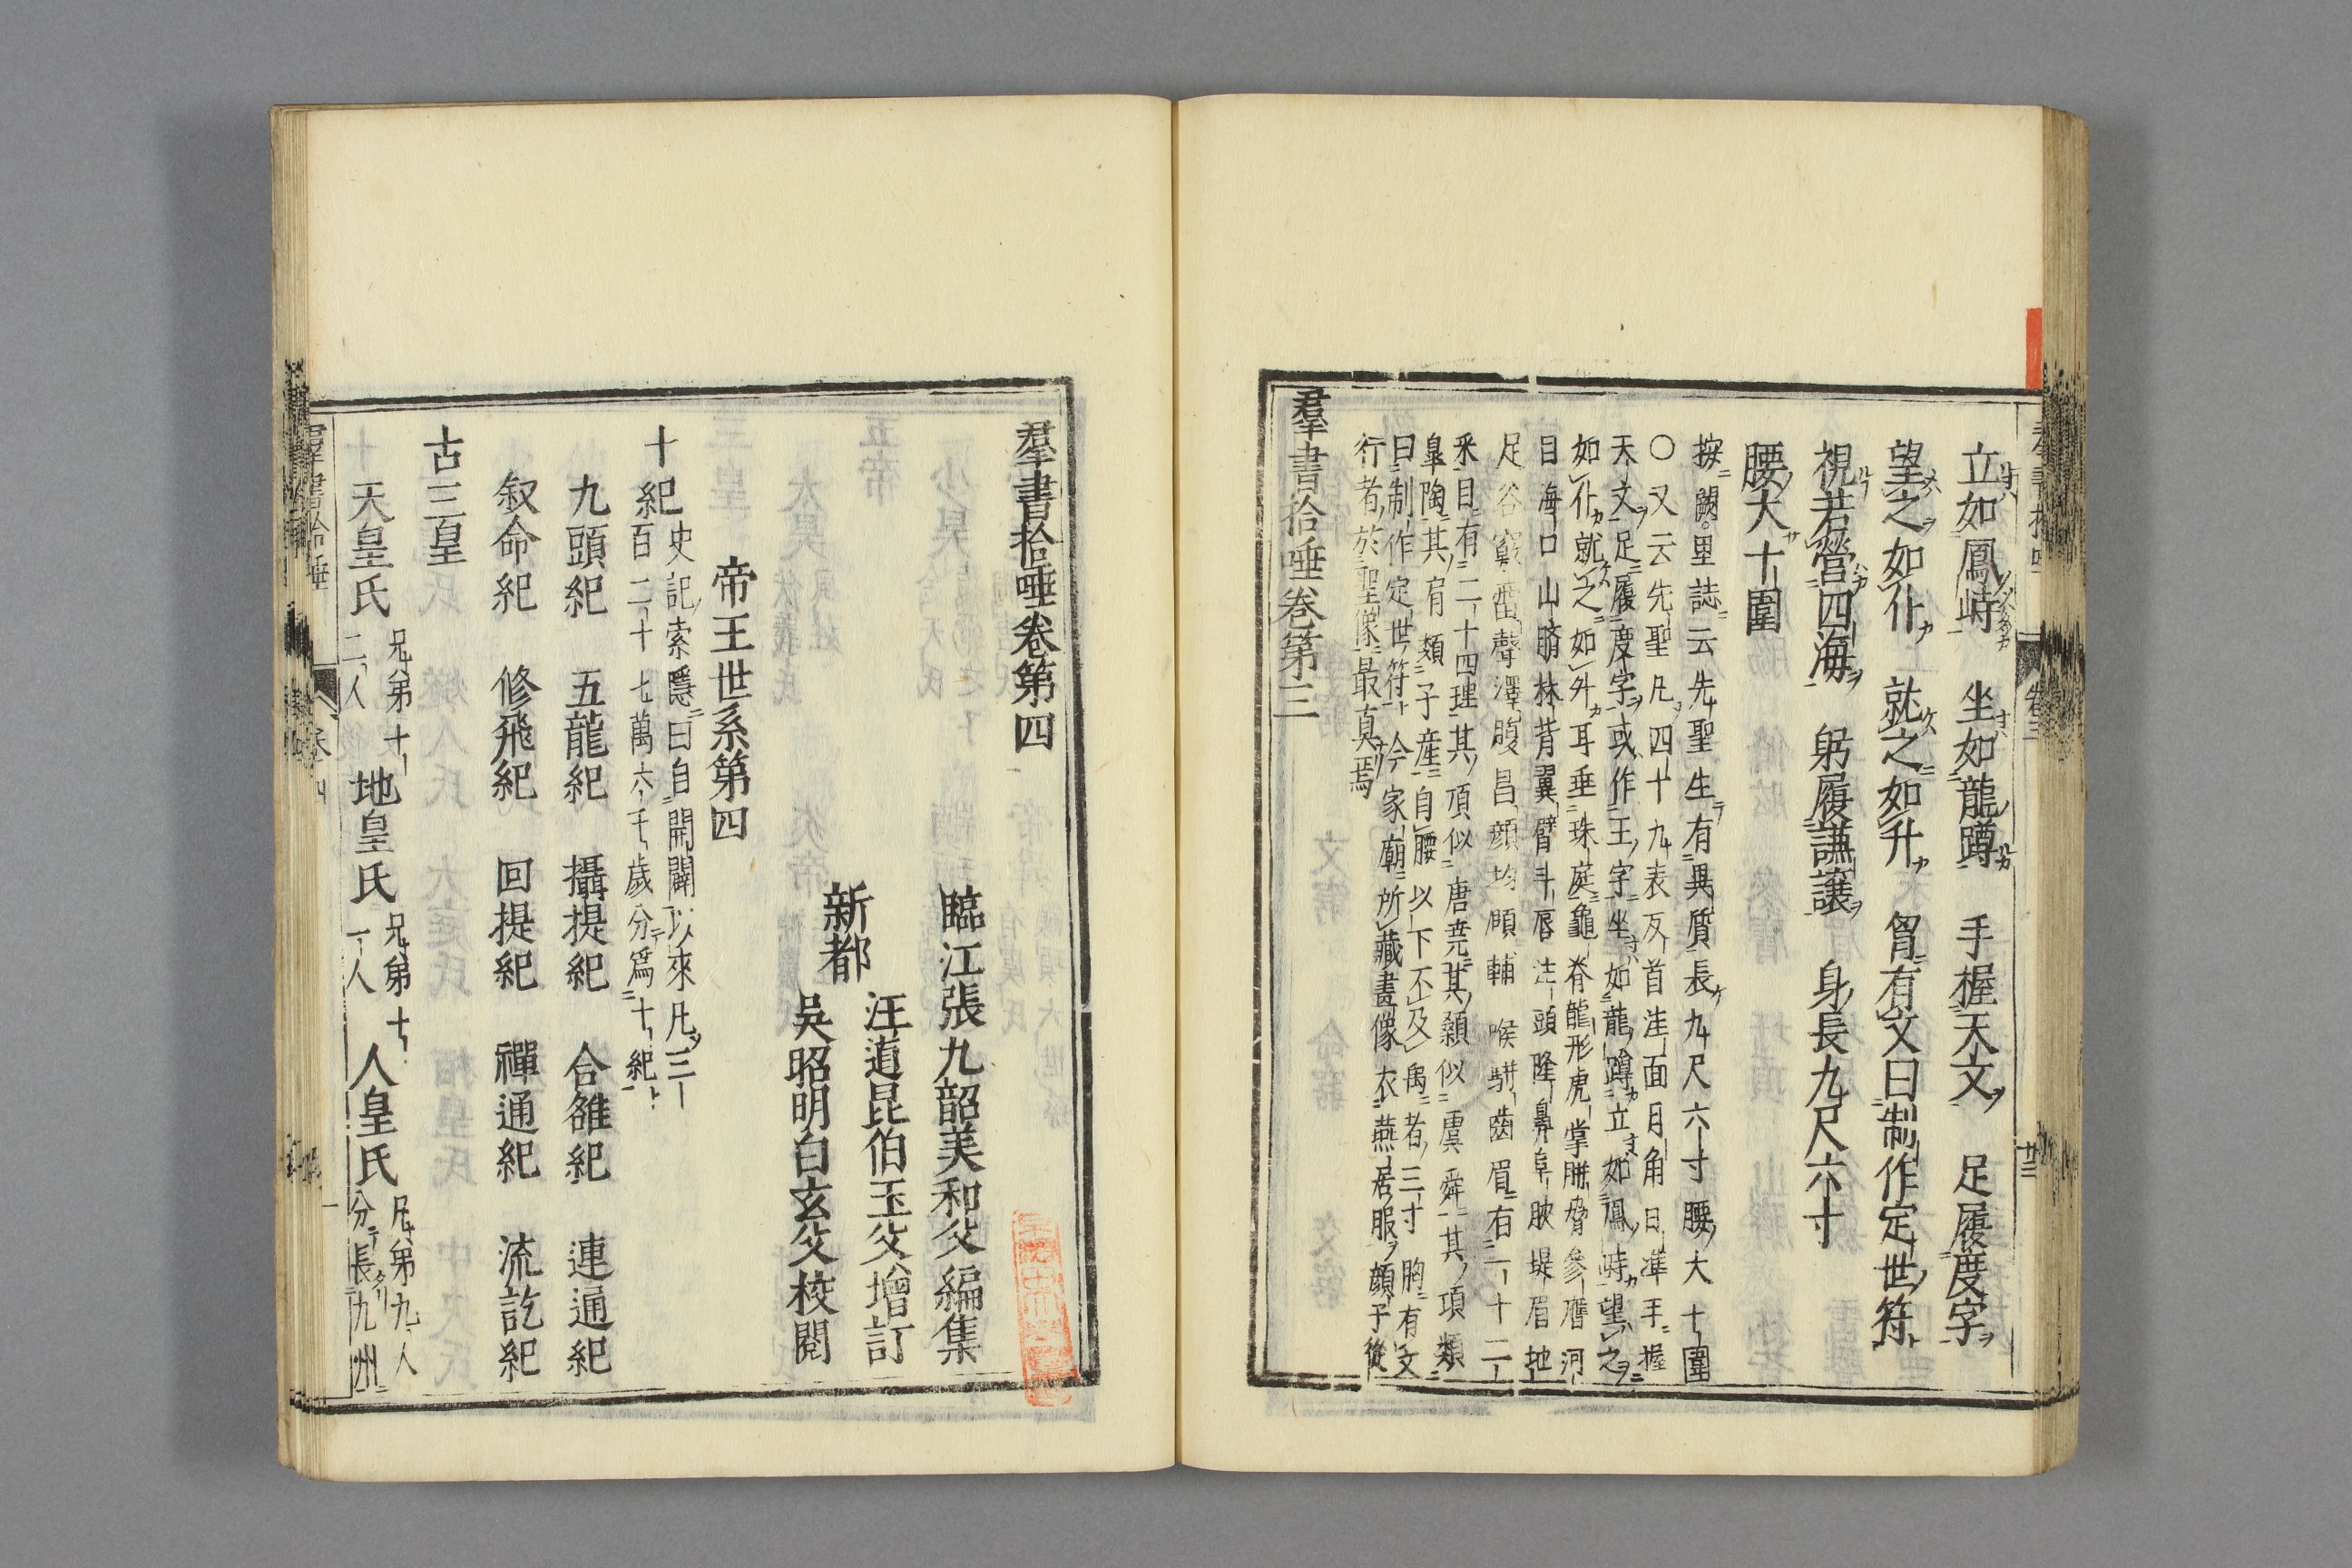 立如鳳峙　坐如龍蹲　手握天文　足履度字
望之如仆　就之如升　胷有文曰制作定世符
視若營四海　躬履謙讓　身長九尺六寸
腰大十圍
按闕里誌云先聖生有異質長九尺六寸腰大十圍
○又云先聖凡四十九表反首洼面月角日準手握
天文足履度字或作王字坐如龍蹲立如鳳峙望之
如仆就之如升耳垂珠庭龜脊龍形虎掌胼脅參膺河
目海口山臍林背翼臂斗唇注頭隆鼻阜胦堤眉地
足谷竅雷聲澤腹昌顔均頤輔喉駢齒眉有一十二
采目有二十四理其頂似唐堯其顙似虞舜其項類
臯陶其肩類子產自腰以下不及禹者三寸胸有文
曰制作定世符今家廟所藏畫像衣燕居服顔子從
行者於聖像最真焉
羣書拾唾卷第三
羣書拾唾卷第四
臨江張九韶美和父編集
新都
汪道昆伯玉父增訂
吳昭明白玄父校閱
帝王世系第四
十紀
史記索隱曰自開闢以來凡三
百二十七萬六千歲分爲十紀
九頭紀　五龍紀　攝提紀　合雒紀　連通紀
叙命紀　修飛紀　回提紀　禪通紀　流訖紀
古三皇
天皇氏兄弟十二人　地皇氏兄弟十一人　人皇氏兄弟九人分長九州